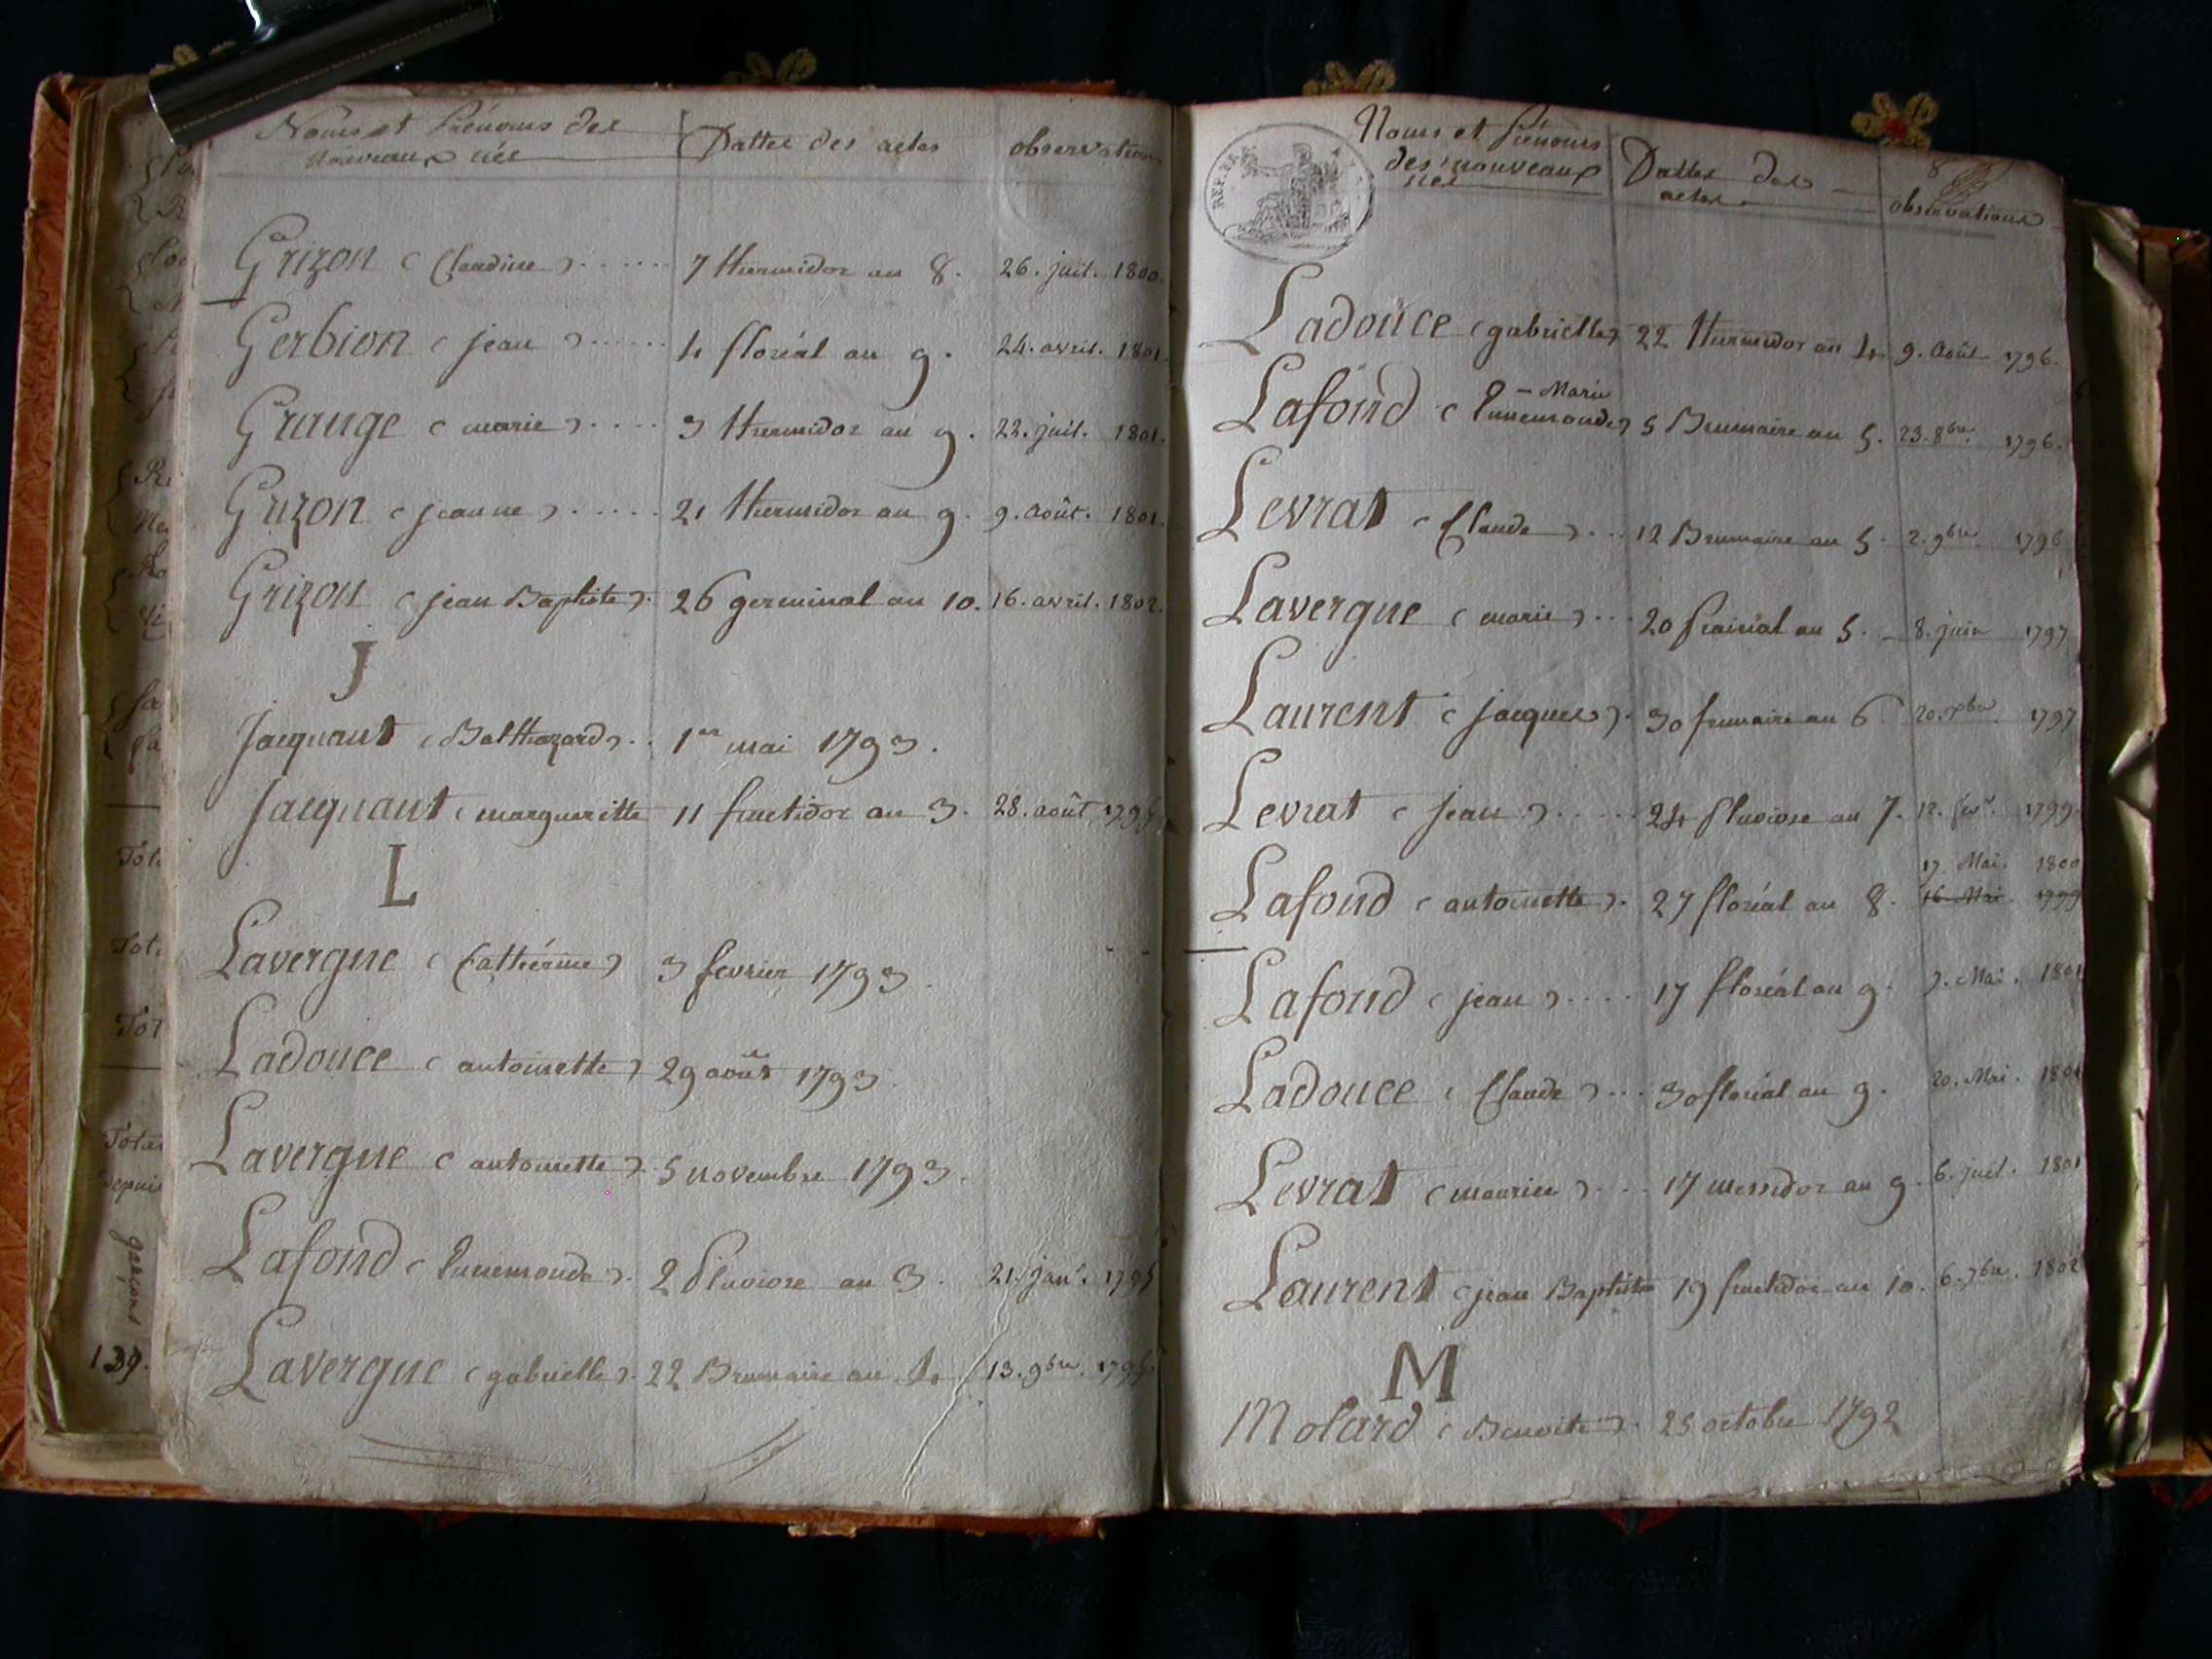 Noms et Prénoms des
nouveaux nés
Dattes des actes
observations
Grizon (Claudine) ...... 7 thermidor an 8. 26. juil. 1800.
Gerbion (jean) ...... 4 floréal an 9. 24. avril. 1801.
Grange (marie) .... 3 thermidor an 9. 22. juil. 1801.
Grizon (jeanne) ..... 21 thermidor an 9. 9. Août. 1801.
Grizon (jean Baptiste). 26 germinal an 10. 16. avril. 1802.
J
Jacquant (Balthazard).. 1er mai 1793.
Jacquant (margueritte 11 fructidor an 3. 28. août 1795
L
Lavergne (Cathérine) 3 fevrier 1793.
Ladouce (antoinette) 29 août 1793.
Lavergne (antoinette). 5 novembre 1793.
Lafond (Ennemonde). 2 Pluviose an 3. 21. janr. 1795
Lavergne (gabrielle). 22 Brumaire an 4 13. 9bre. 1795.
Noms et Prénoms
des nouveaux
nés
Dattes des
actes
8
observations
REP. FRA.
Ladouce (gabrielle) 22 thermidor an 4. 9. Août 1796.
Lafond (Ennemonde-Marie) 5 Brumaire an 5. 23. 8bre. 1796.
Levrat (Claude) ... 12 Brumaire an 5. 2. 9bre. 1796
Lavergne (marie) ... 20 Prairial an 5. 8. juin 1797
Laurent (jacques). 30 frimaire an 6. 20. xbre. 1797
Levrat (jean) ..... 24 Pluviose an 7. 12. fevr. 1799.
17. Mai. 1800
Lafond (antoinette). 27 floréal an 8. 16 Mai. 1799
Lafond (jean) .... 17 floréal an 9. 7. Mai. 1801
Ladouce (Claude) ... 30 floréal an 9. 20. Mai. 1801
Levrat (maurice) .... 17 messidor an 9. 6. juil. 1801
Laurent (jean Baptiste 19 fructidor an 10. 6. 7bre. 1802
M
Molard (Benoite). 25 octobre 1792
Tot
Tot
Tot
garçons
139.